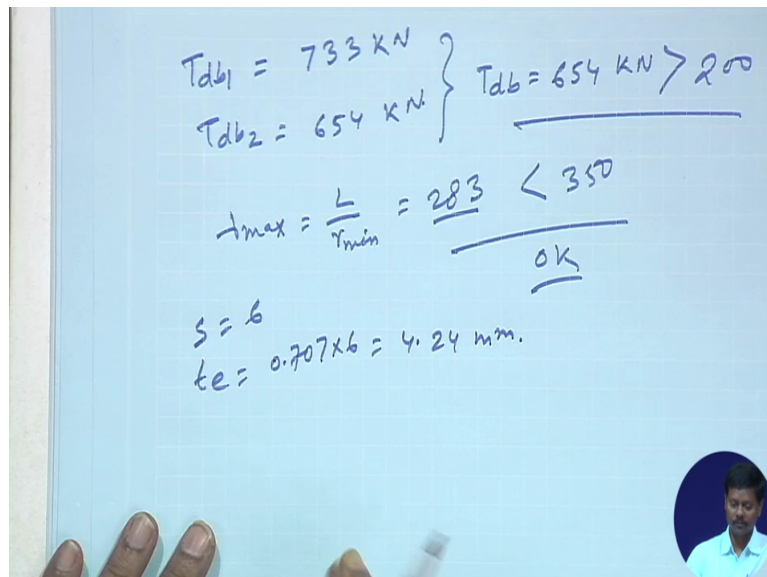 Tdb1 = 733 KN } Tdb = 654 KN > 200
Tdb2 = 654 KN.
λmax = L/rmin = 283 < 350
OK
S = 6
te = 0.707×6 = 4.24 mm.